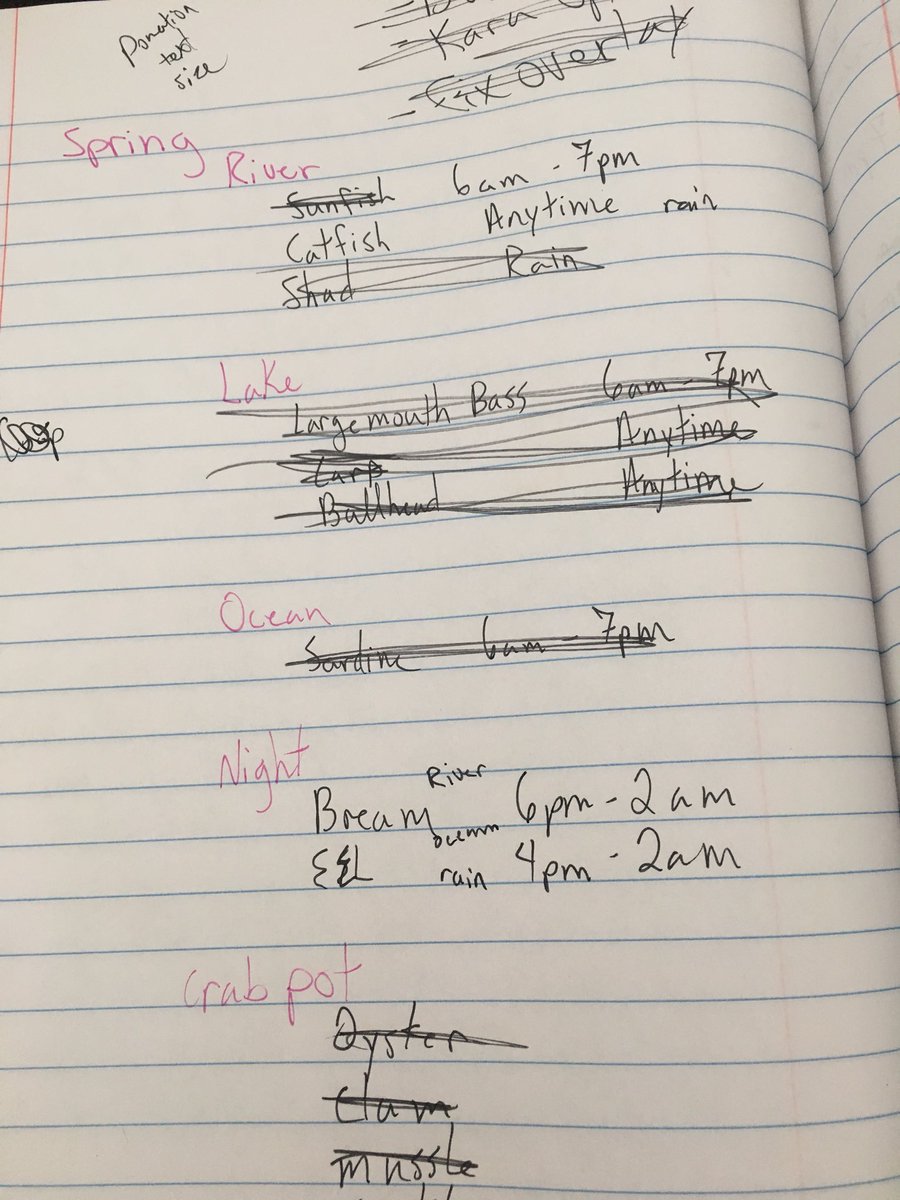 Donation
text
size
- Kara
- Fix Overlay
Spring
River
Sunfish 6am - 7pm
Catfish Anytime rain
Shad Rain
Lake
Largemouth Bass 6am - 7pm
Carp Anytime
Bullhead Anytime
Ocean
Sardine 6am - 7pm
Night
Bream River 6pm - 2am
Eel ocean rain 4pm - 2am
Crab pot
Oyster
Clam
Mussle